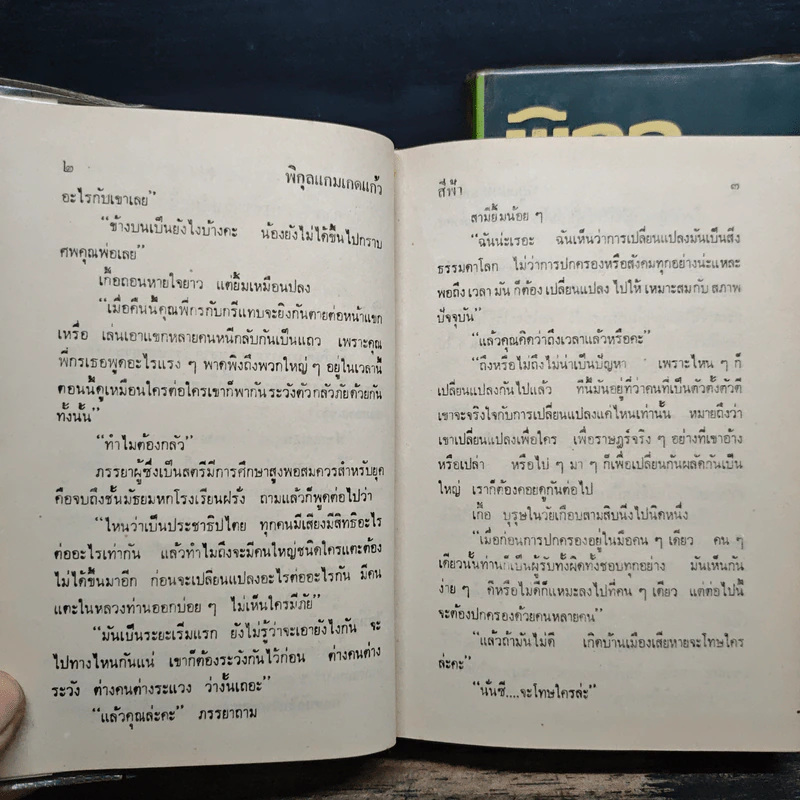 พิกุล
๒ พิกุลแกมเกดแก้ว
อะไรกับเขาเลย”
“ข้างบนเป็นยังไงบ้างคะ น้องยังไม่ได้ขึ้นไปกราบ
ศพคุณพ่อเลย”
เกื้อถอนหายใจยาว แต่ยิ้มเหมือนปลง
“เมื่อคืนนี้คุณพี่กรกับกรีแทบจะยิงกันตายต่อหน้าแขก
เหรื่อ เล่นเอาแขกหลายคนหนีกลับกันเป็นแถว เพราะคุณ
พี่กรเธอพูดอะไรแรง ๆ พาดพิงถึงพวกใหญ่ ๆ อยู่ในเวลานี้
ตอนนี้ดูเหมือนใครต่อใครเขาก็พากันระวังตัวกลัวภัยด้วยกัน
ทั้งนั้น”
“ทำไมต้องกลัว”
ภรรยาผู้ซึ่งเป็นสตรีมีการศึกษาสูงพอสมควรสำหรับยุค
คือจบถึงชั้นมัธยมหกโรงเรียนฝรั่ง ถามแล้วก็พูดต่อไปว่า
“ไหนว่าเป็นประชาธิปไตย ทุกคนมีเสียงมีสิทธิอะไร
ต่ออะไรเท่ากัน แล้วทำไมถึงจะมีคนใหญ่ชนิดใครแตะต้อง
ไม่ได้ขึ้นมาอีก ก่อนจะเปลี่ยนแปลงอะไรต่ออะไรกัน มีคน
แตะในหลวงท่านออกบ่อย ๆ ไม่เห็นใครมีภัย”
“มันเป็นระยะเริ่มแรก ยังไม่รู้ว่าจะเอายังไงกัน จะ
ไปทางไหนกันแน่ เขาก็ต้องระวังกันไว้ก่อน ต่างคนต่าง
ระวัง ต่างคนต่างระแวง ว่างั้นเถอะ”
“แล้วคุณล่ะคะ” ภรรยาถาม
สีฟ้า ๓
สามียิ้มน้อย ๆ
“ฉันน่ะเรอะ ฉันเห็นว่าการเปลี่ยนแปลงมันเป็นสิ่ง
ธรรมดาโลก ไม่ว่าการปกครองหรือสังคมทุกอย่างน่ะแหละ
พอถึงเวลามันก็ต้องเปลี่ยนแปลงไปให้เหมาะสมกับสภาพ
ปัจจุบัน”
“แล้วคุณคิดว่าถึงเวลาแล้วหรือคะ”
“ถึงหรือไม่ถึงไม่น่าเป็นปัญหา เพราะไหน ๆ ก็
เปลี่ยนแปลงกันไปแล้ว ทีนี้มันอยู่ที่ว่าคนที่เป็นตัวตั้งตัวตี
เขาจะจริงใจกับการเปลี่ยนแปลงแค่ไหนเท่านั้น หมายถึงว่า
เขาเปลี่ยนแปลงเพื่อใคร เพื่อราษฎร์จริง ๆ อย่างที่เขาอ้าง
หรือเปล่า หรือไป ๆ มา ๆ ก็เพื่อเปลี่ยนกันผลัดกันเป็น
ใหญ่ เราก็ต้องคอยดูกันต่อไป
เกื้อ บุรุษในวัยเกือบสามสิบนิ่งไปนิดหนึ่ง
“เมื่อก่อนการปกครองอยู่ในมือคน ๆ เดียว คน ๆ
เดียวนั้นท่านก็เป็นผู้รับทั้งผิดทั้งชอบทุกอย่าง มันเห็นกัน
ง่าย ๆ ดีหรือไม่ดีก็แหมะลงไปที่คน ๆ เดียว แต่ต่อไปนี้
จะต้องปกครองด้วยคนหลายคน”
“แล้วถ้ามันไม่ดี เกิดบ้านเมืองเสียหายจะโทษใคร
ล่ะคะ”
“นั่นซี....จะโทษใครล่ะ”